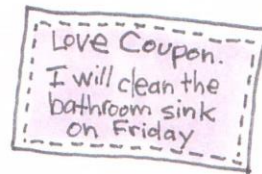 Love Coupon.
I will clean the
bathroom sink
on Friday